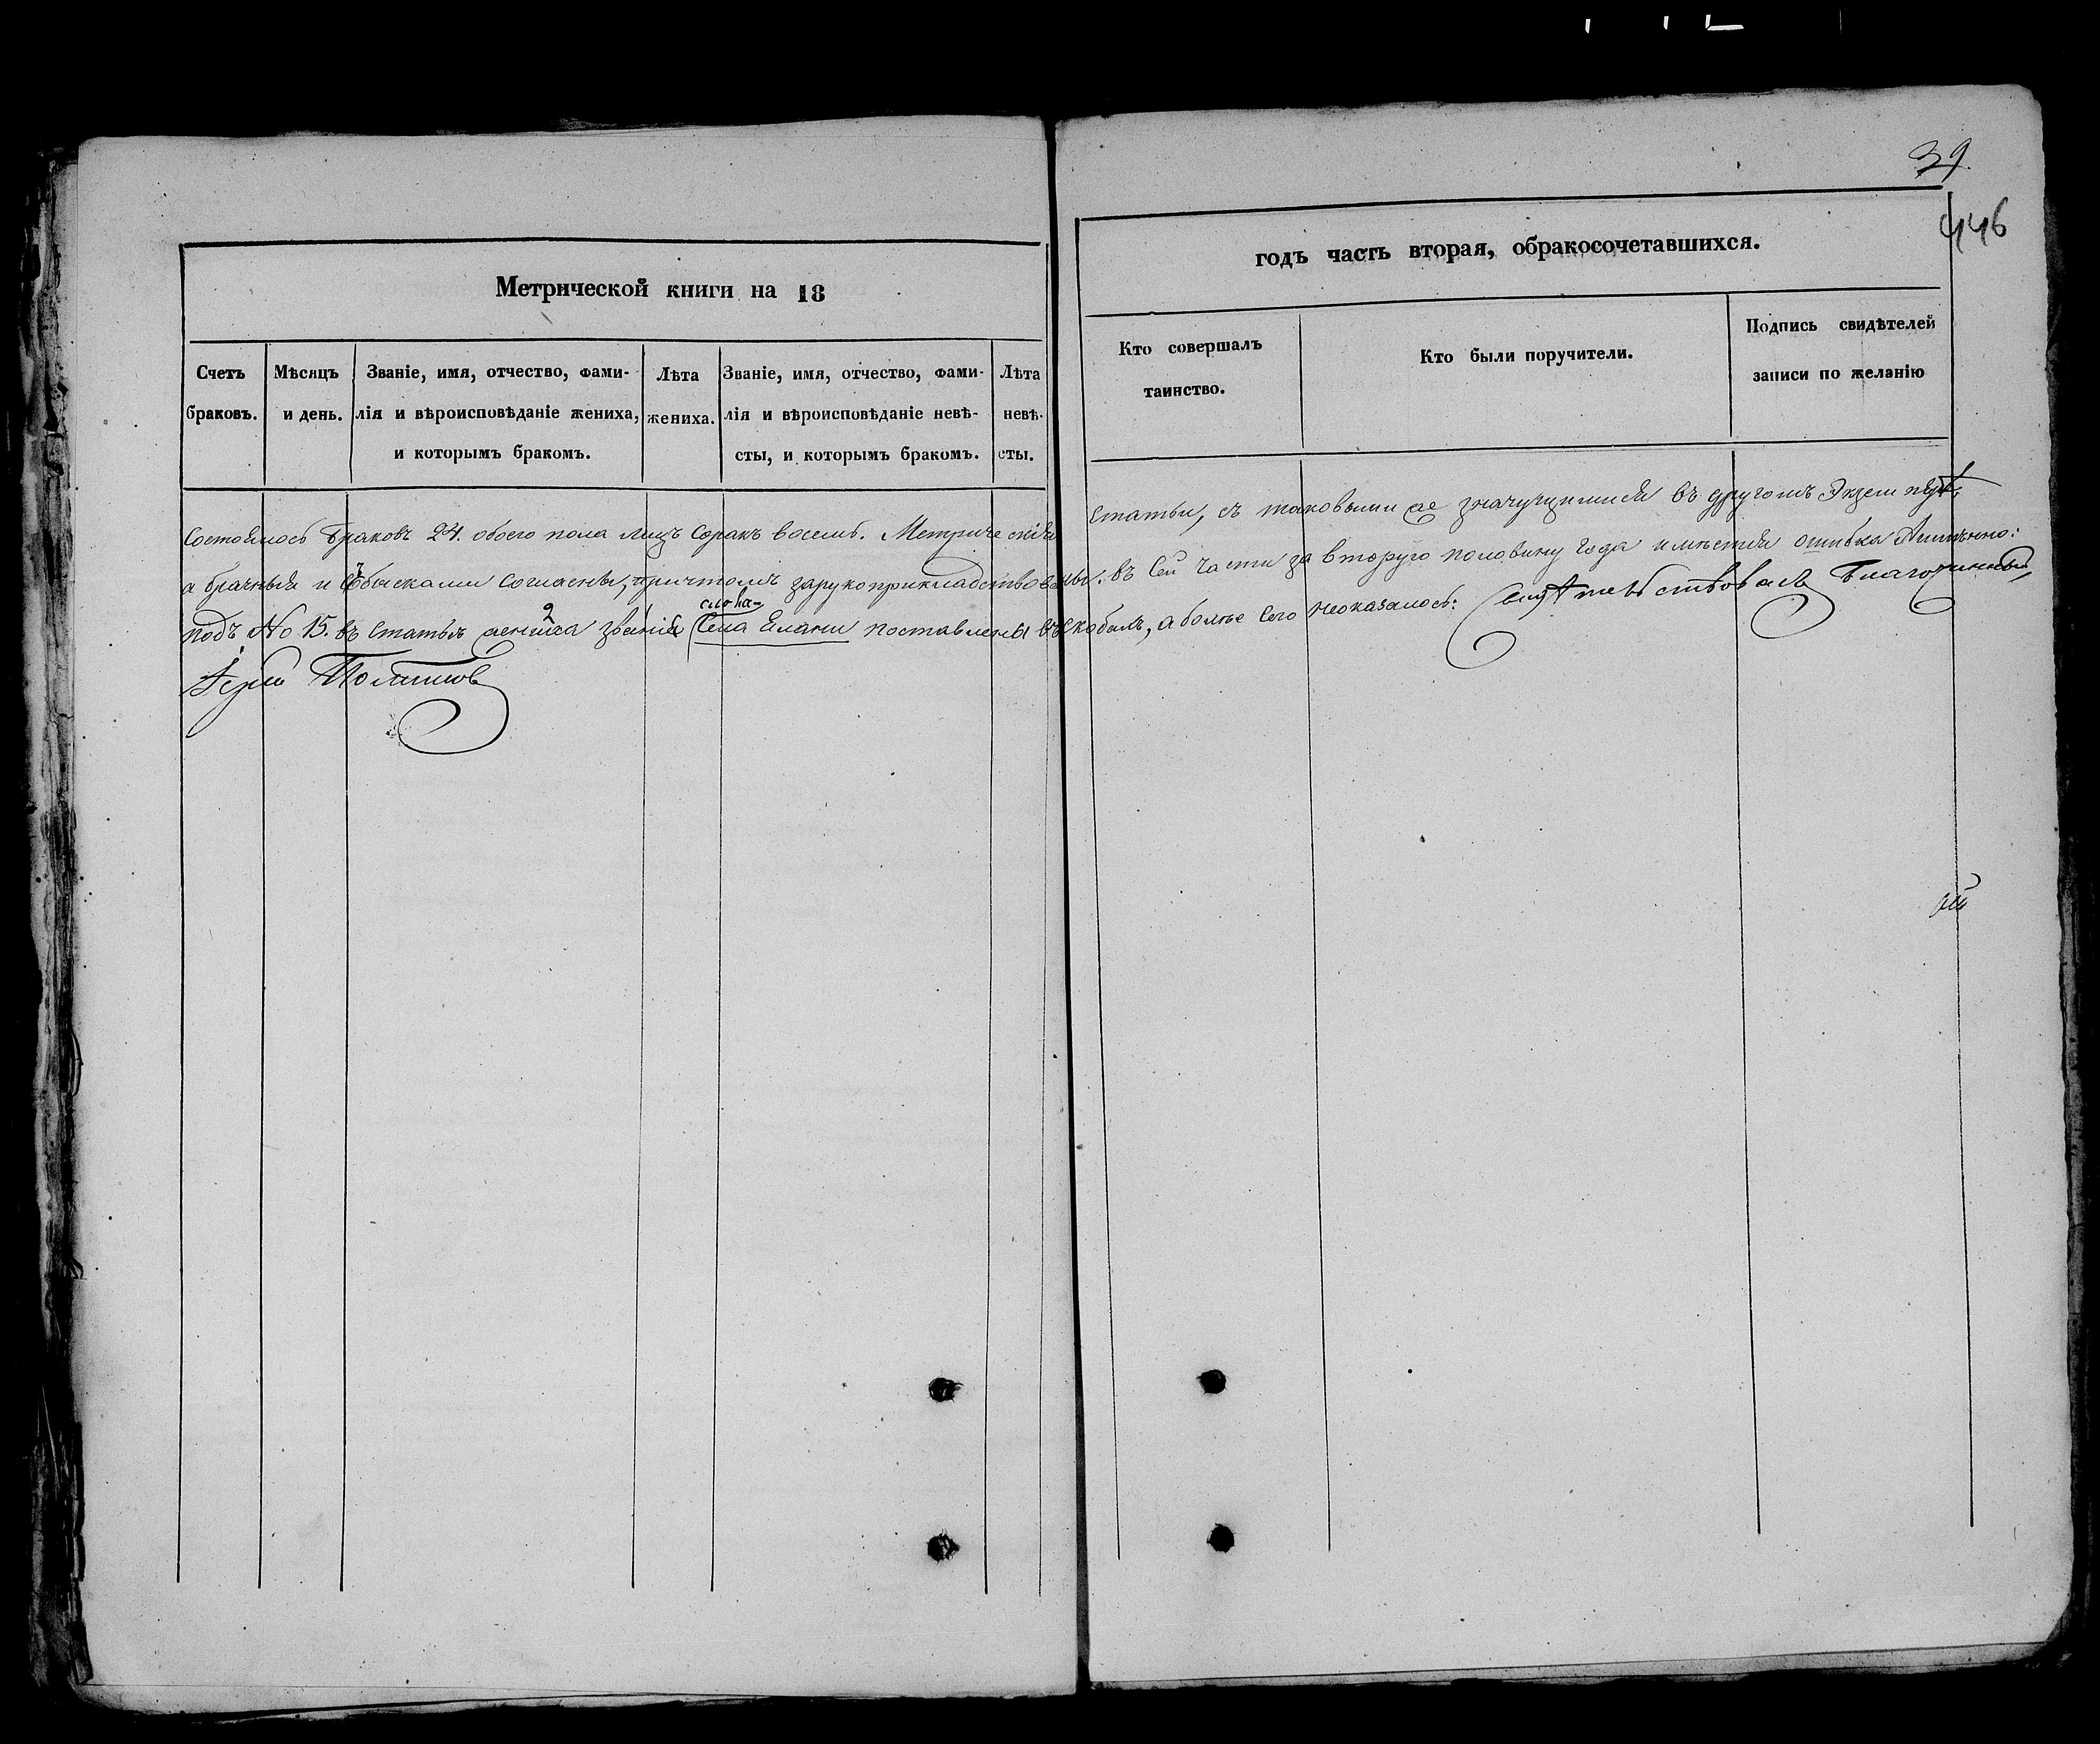 39.
446
Метрической книги на 18
годъ часть вторая, обракосочетавшихся.
Счетъ браковъ.
Мѣсяцъ и день.
Званіе, имя, отчество, фами-
лія и вѣроисповѣданіе жениха,
и которымъ бракомъ.
Лѣта жениха.
Званіе, имя, отчество, фами-
лія и вѣроисповѣданіе невѣ-
сты, и которымъ бракомъ.
Лѣта невѣ-
сты.
Кто совершалъ
таинство.
Кто были поручители.
Подпись свидѣтелей
записи по желанію
Состоялось браковъ 24. обоего пола лицъ сорокъ восемь. Метрическія статьи, съ таковыми же значущимися въ другомъ Экземпл
а брачныя и съ обысками согласны, притомъ зарукоприкладствованы. въ сей части за вторую половину года имѣется ошибка Аимѣнно:
подъ No 15. въ статьѣ жениха званіе слова Села Елани поставлены въ скобахъ, а болѣе сего неоказалось: Свидѣтельствовалъ Благочинный,
Іерей